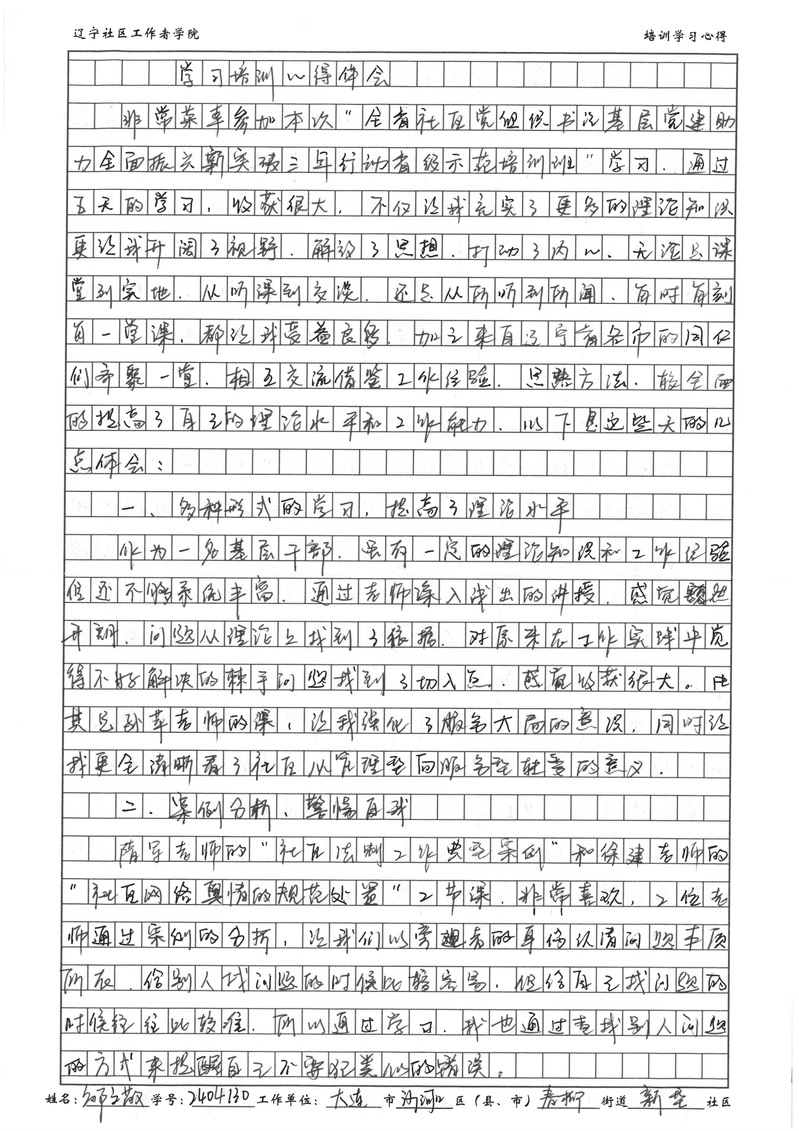 辽宁社区工作者学院 培训学习心得
学习培训心得体会
非常荣幸参加本次"全省社区党组织书记基层党建助
力全面振兴新突破三年行动省级示范培训班"学习.通过
五天的学习,收获很大.不仅让我充实了更多的理论知识
更让我开阔了视野.解放了思想.打动了内心.无论是课
堂到实地.从听课到交谈.还是从所听到所闻.每时每刻
每一堂课.都让我受益良多.加之来自辽宁省各市的同仁
们齐聚一堂.相互交流借鉴工作经验.思路方法.较全面
的提高了自己的理论水平和工作能力.以下是这些天的几
点体会:
一、多种形式的学习,提高了理论水平
作为一名基层干部.虽有一定的理论知识和工作经验
但还不够系统丰富.通过老师深入浅出的讲授.感觉豁然
开朗.问题从理论上找到了依据.对原来在工作实践中觉
得不好解决的棘手问题找到了切入点.感觉收获很大。尤
其是孙苹老师的课,让我强化了服务大局的意识,同时让
我更全清晰看了社区从管理型向服务型转变的意义.
二.案例分析,警惕自我
隋军老师的"社区法制工作典型案例"和徐建老师的
"社区网络舆情的规范处置"2节课.非常喜欢,2位老
师通过案例的分析,让我们以旁观者的身份认清问题本质
所在.给别人找问题的时候比较容易.但给自己找问题的
时候往往比较难.所以通过学习.我也通过查找别人问题
的方式来提醒自己不要犯类似的错误。
姓名: 学号:2404130 工作单位: 大连 市 沙河口 区(县、市) 春柳 街道 社区